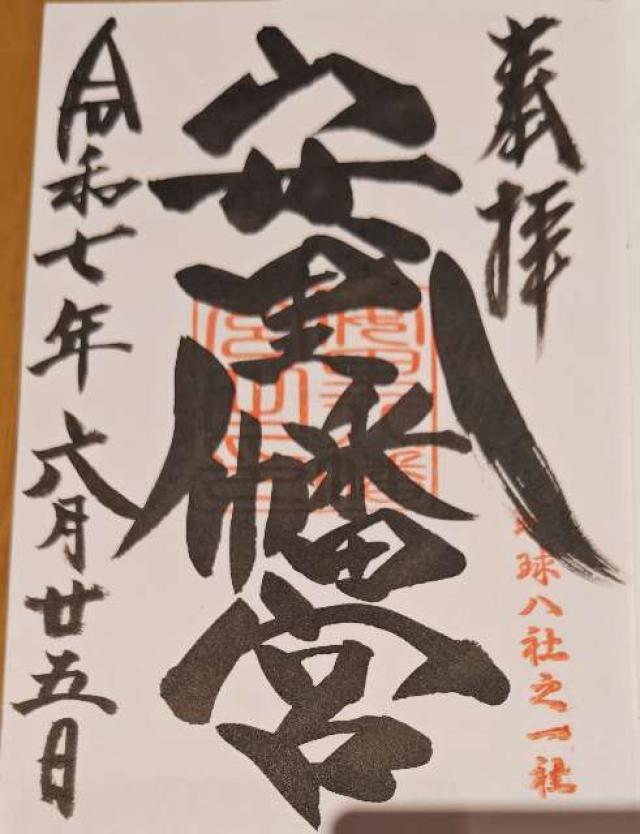 奉拝
球八社之一社
安里八幡宮
令和七年六月廿五日